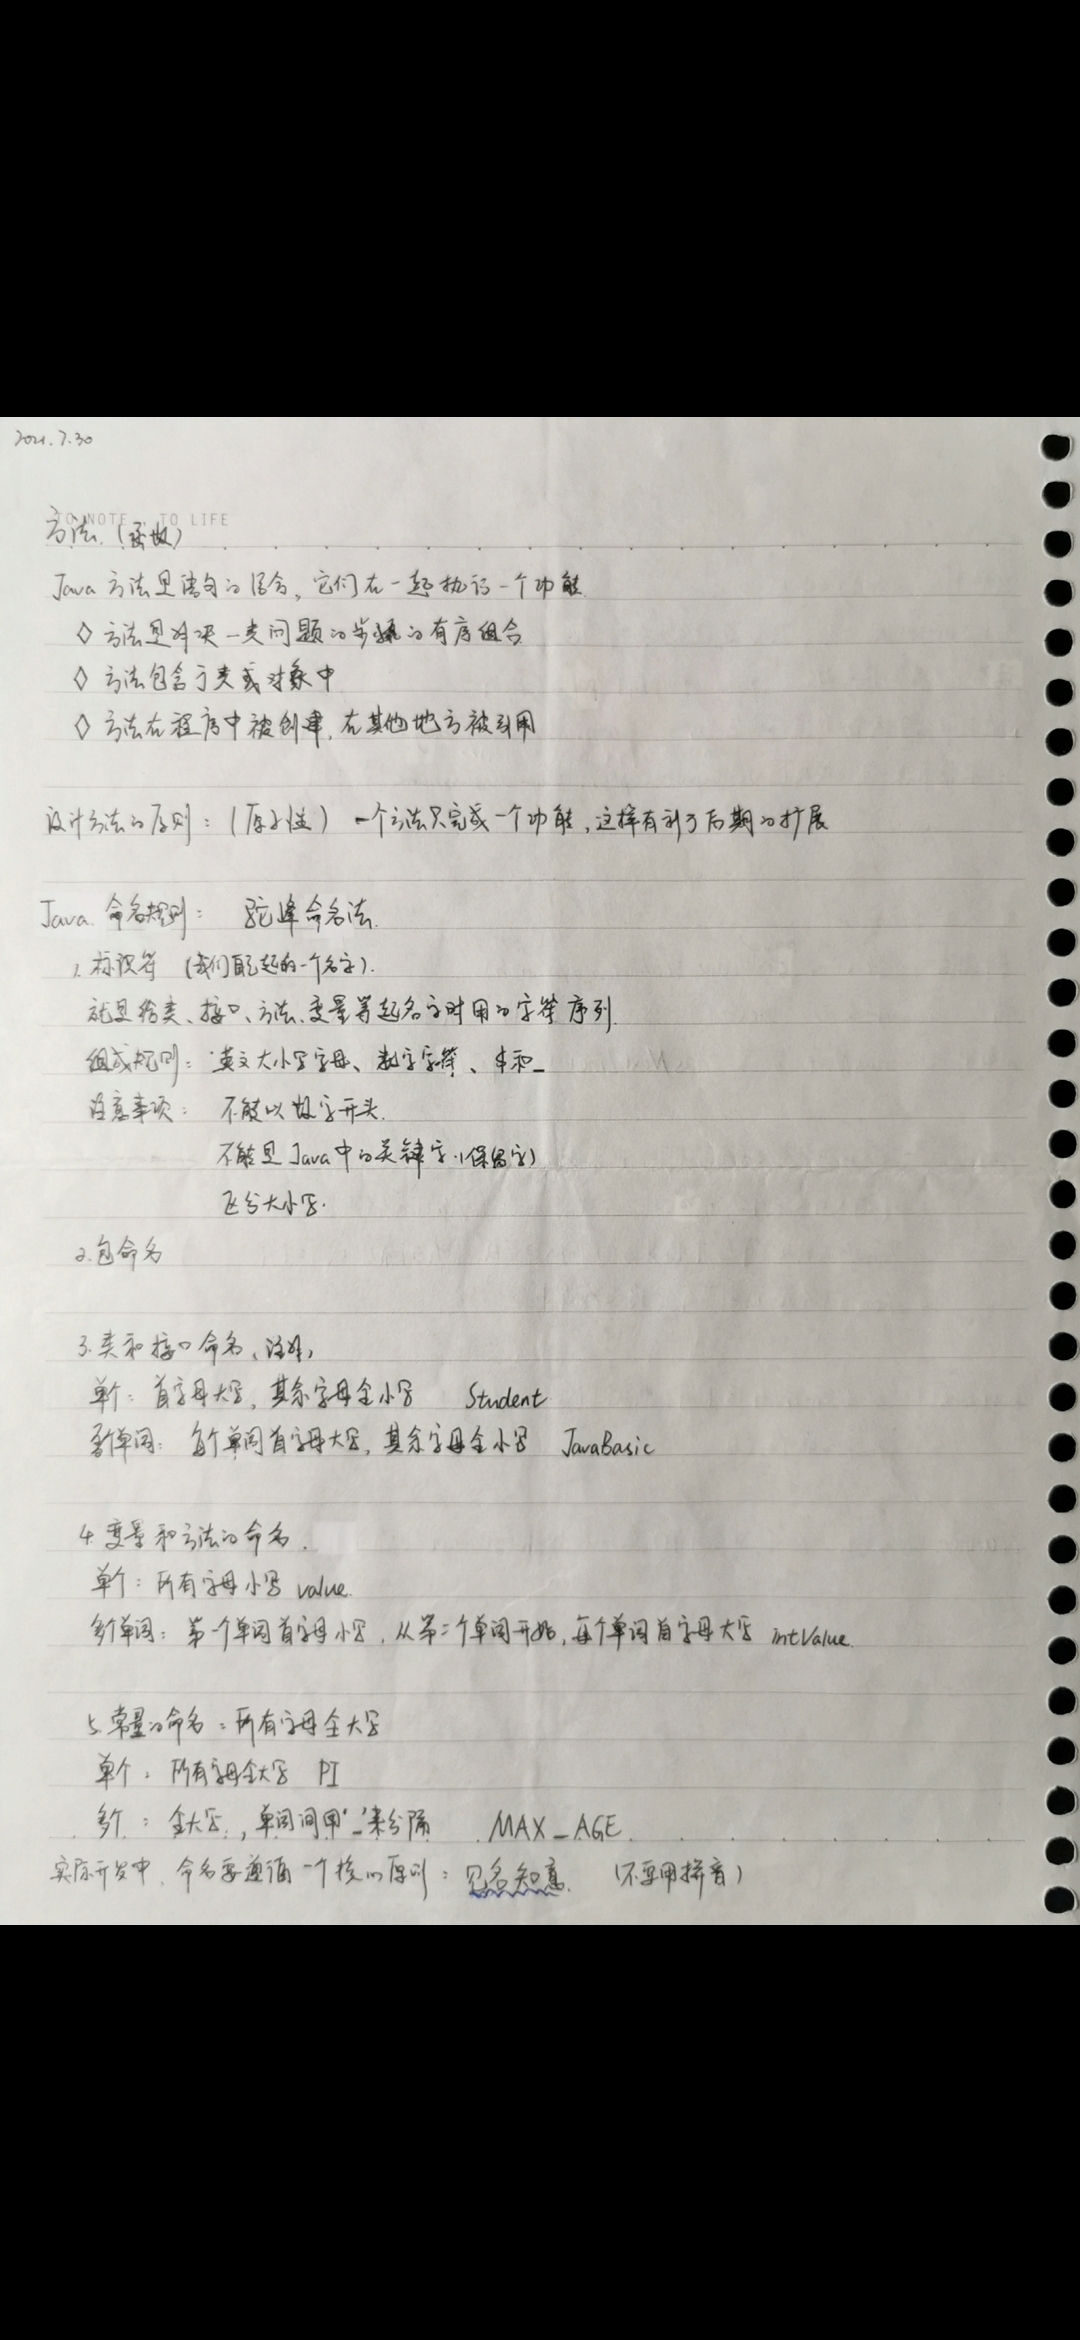 2021.7.30
TO NOTE TO LIFE
方法（函数）
Java 方法是语句的组合，它们在一起执行一个功能
◇ 方法是解决一类问题的步骤的有序组合
◇ 方法包含于类或对象中
◇ 方法在程序中被创建，在其他地方被引用
设计方法的原则：（原子性） 一个方法只完成一个功能，这样有利于后期的扩展
Java 命名规则： 驼峰命名法.
1. 标识符 （我们自己起的一个名字）.
就是给类、接口、方法、变量等起名字时用的字符序列.
组成规则：英文大小写字母、数字字符、$和_
注意事项： 不能以数字开头.
不能是Java中的关键字.（保留字）
区分大小写.
2. 包命名
3. 类和接口命名、
单个：首字母大写，其余字母全小写 Student
多个单词：每个单词首字母大写，其余字母全小写 JavaBasic
4. 变量和方法的命名.
单个：所有字母小写 value.
多个单词：第一个单词首字母小写，从第二个单词开始，每个单词首字母大写 intValue.
5. 常量的命名：所有字母全大写
单个：所有字母全大写 PI
多个：全大写，单词间用'_'来分隔 MAX_AGE.
实际开发中，命名要遵循一个核心原则：见名知意. （不要用拼音）